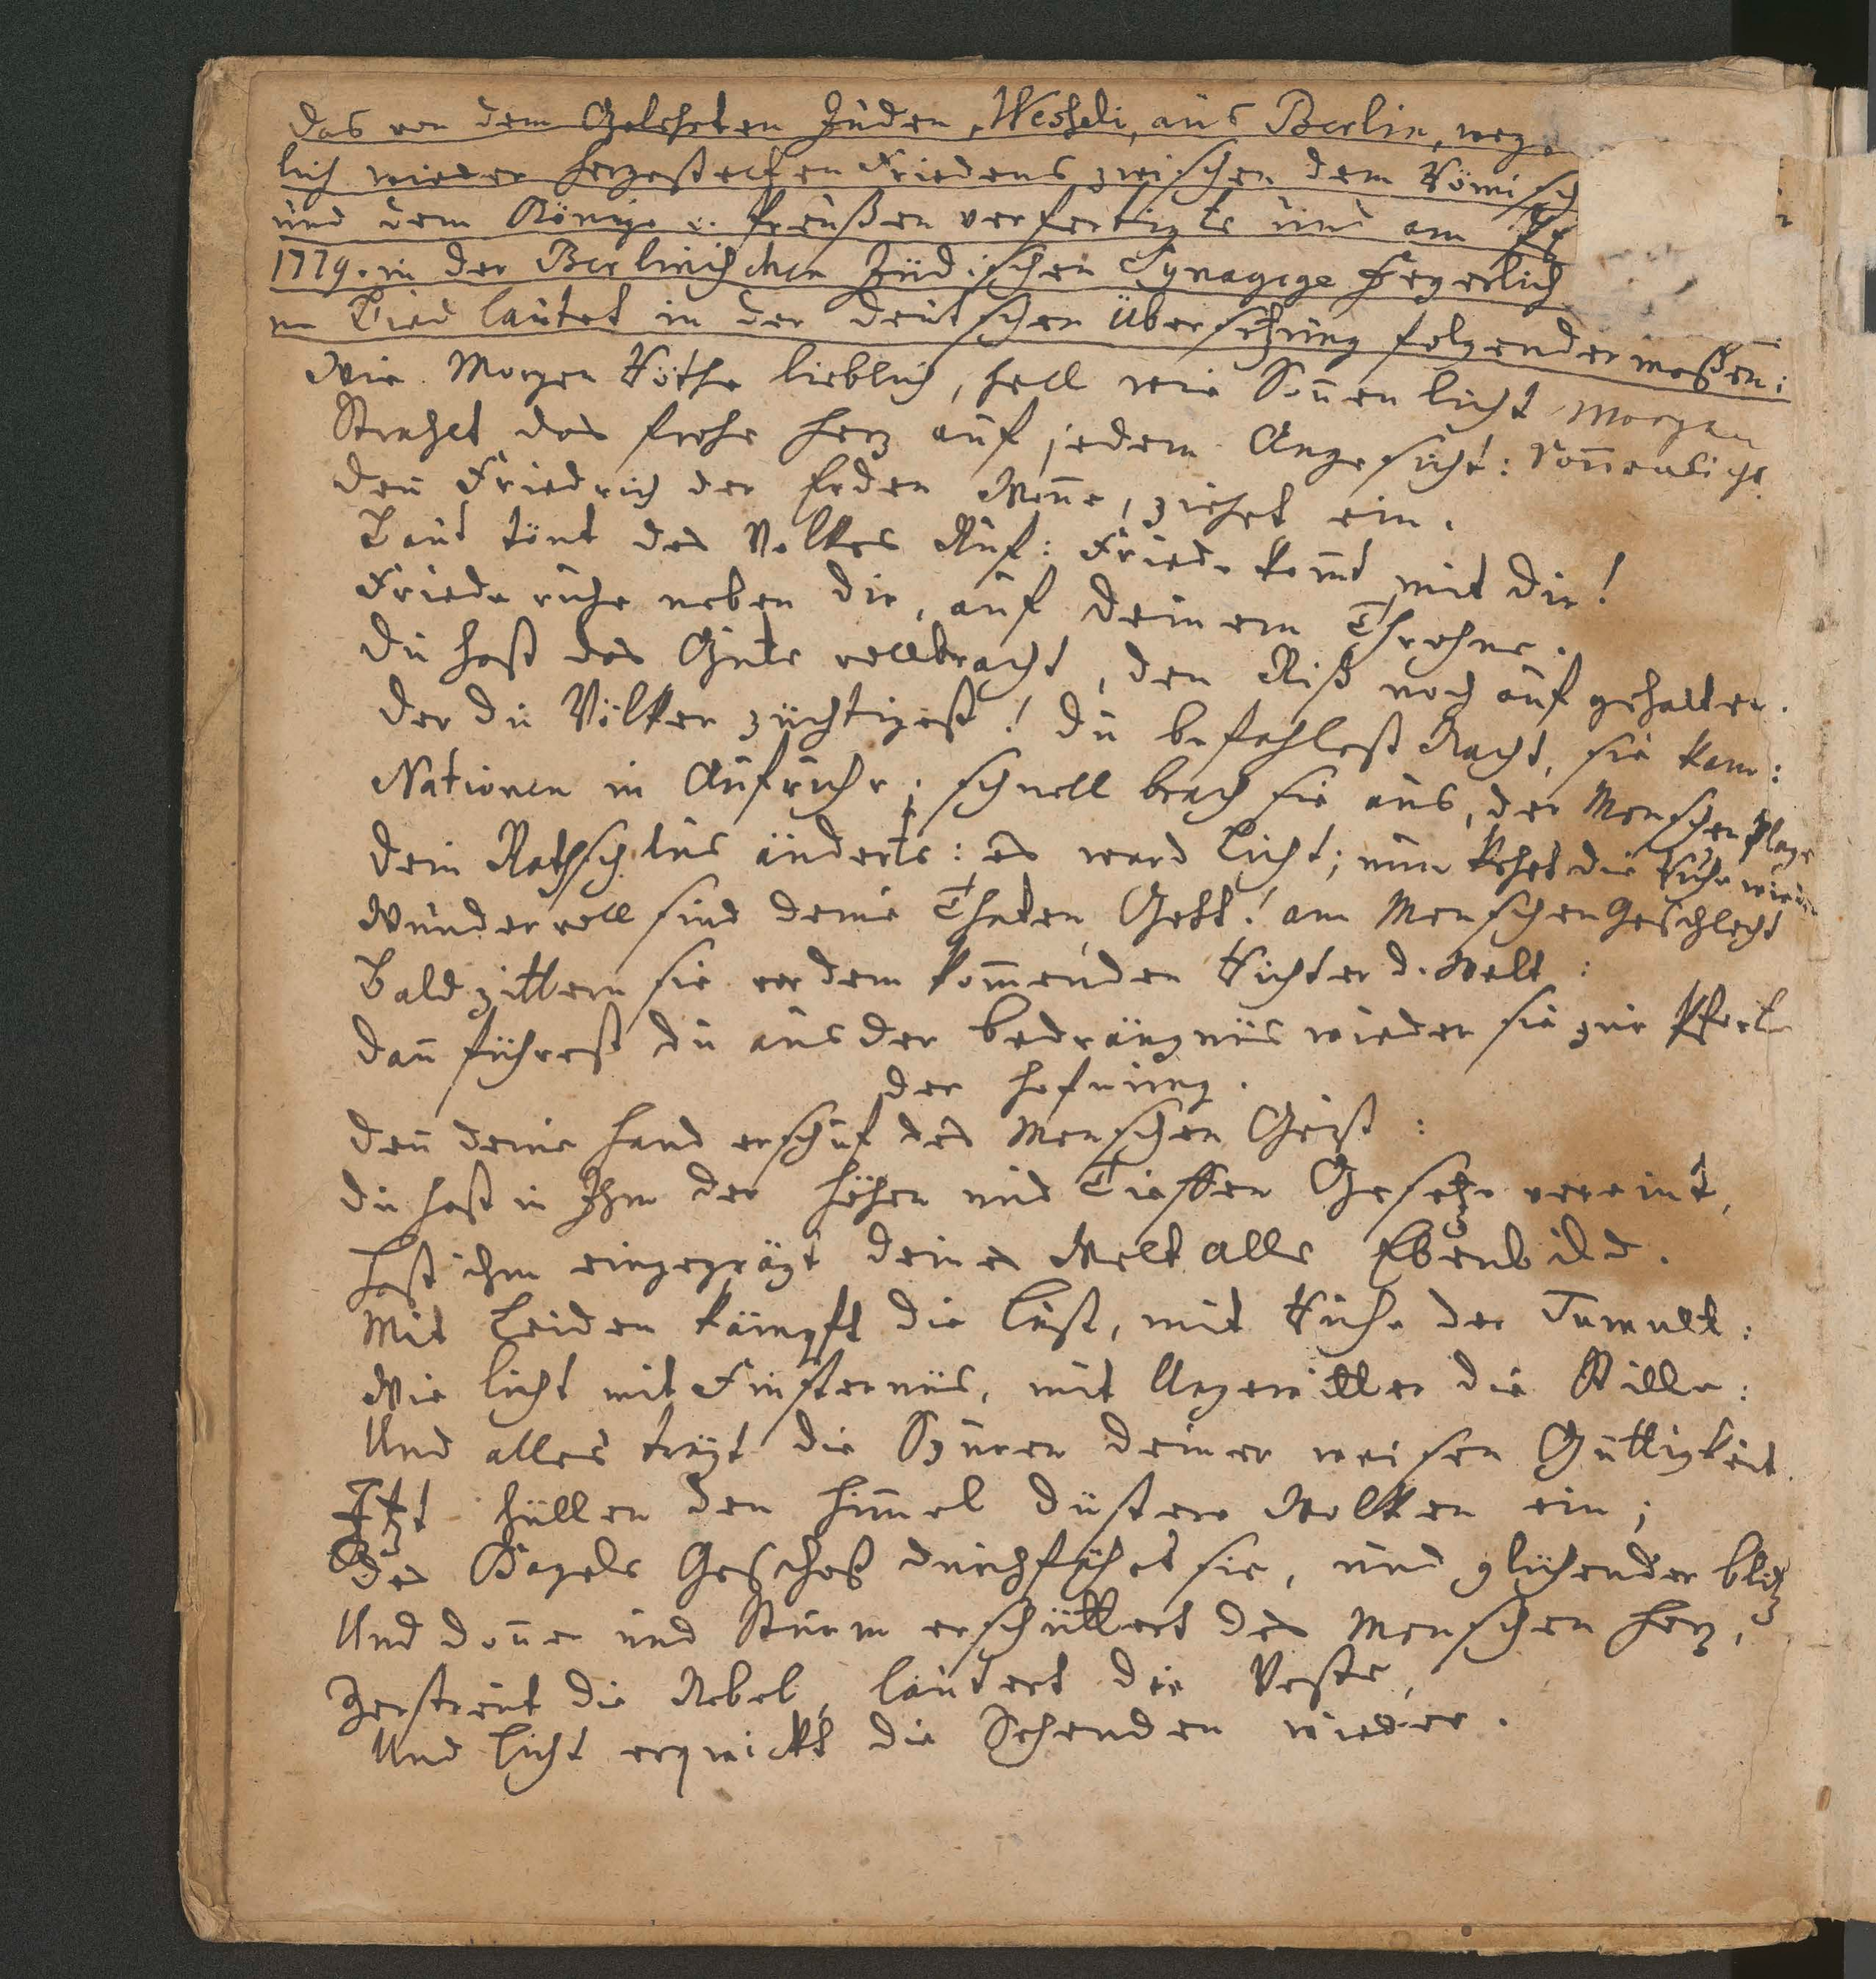 Das von dem Gelehrten Juden, Wesheli, aus Berlin, weg
lich wieder hergestelten Friedens zwischen dem Römisch
und dem Könige v. Preußen verfertigte und am
1779. in der Berlinischen Jüdischen Synagoge Feyerlich
ne Lied lautet in der deutschen Übersetzung folgendermaßen:
Wie Morgen Röthe lieblich, hell wie Sonnen licht Morgen
Strahlet das frohe Herz auf jedem Angesicht: Sonnenlicht
Denn Friedrich der Erden Wonne, ziehet ein.
Laut tönt des Volkes Ruf: Friede komt mit dir!
Friede ruhe neben dir, auf deinem Throhne.
Du hast das Gute vollbracht, den Riß noch auf gehalten.
Der du Völker züchtigest! Du befahlest Nacht, sie kam:
Nationen in Aufruhr; schnell brach sie aus, der Menschen Plage
Dein Rathschlus änderts: es ward Licht; nun kehrt die Ruhe wieder
Wundervoll sind deine Thaten Gott! am Menschen Geschlecht
Bald zittern sie vor dem kommenden Richter d. Welt:
Dann führest du aus der Bedrängnüs wieder sie zur Pforte
der Hofnung.
Denn deine Hand erschuf des Menschen Geist:
Du hast in Ihm der Höhen und Tieffen Gesetze vereint,
Hast ihm eingeprägt deines Welt alls Ebenbild.
Mit Leiden kämpft die Lust, mit Ruhe der Tumult:
Wie Licht mit Finsternüs, mit Ungewitter die Stille:
Und alles trägt die Spuren deiner weisen Güttigkeit.
Itzt hüllen den Himmel düstere Wolken ein;
Des Hagels Geschoß durchfährt sie, und glühender Blitz
Und Donner und Sturm erschüttert des Menschen Herz,
Zerstreut die Nebel, läutert die Veste,
Und Licht erquickt die Sehenden wieder.